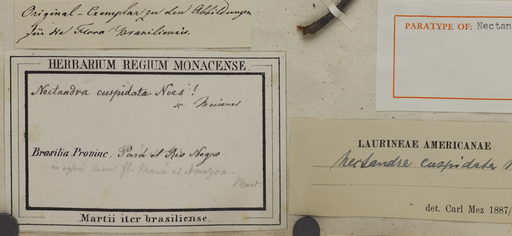 Original-Exemplar zu den Abbildungen
für die Flora Brasiliensis.
HERBARIUM REGIUM MONACENSE.
Nectandra cuspidata Nees!
Meissner
Brasilia Provinc. Pará et Rio Negro.
Mart
Martii iter brasiliense.
PARATYPE OF: Nectan
LAURINEAE AMERICANAE
Nectandra cuspidata N
det. Carl Mez 1887/